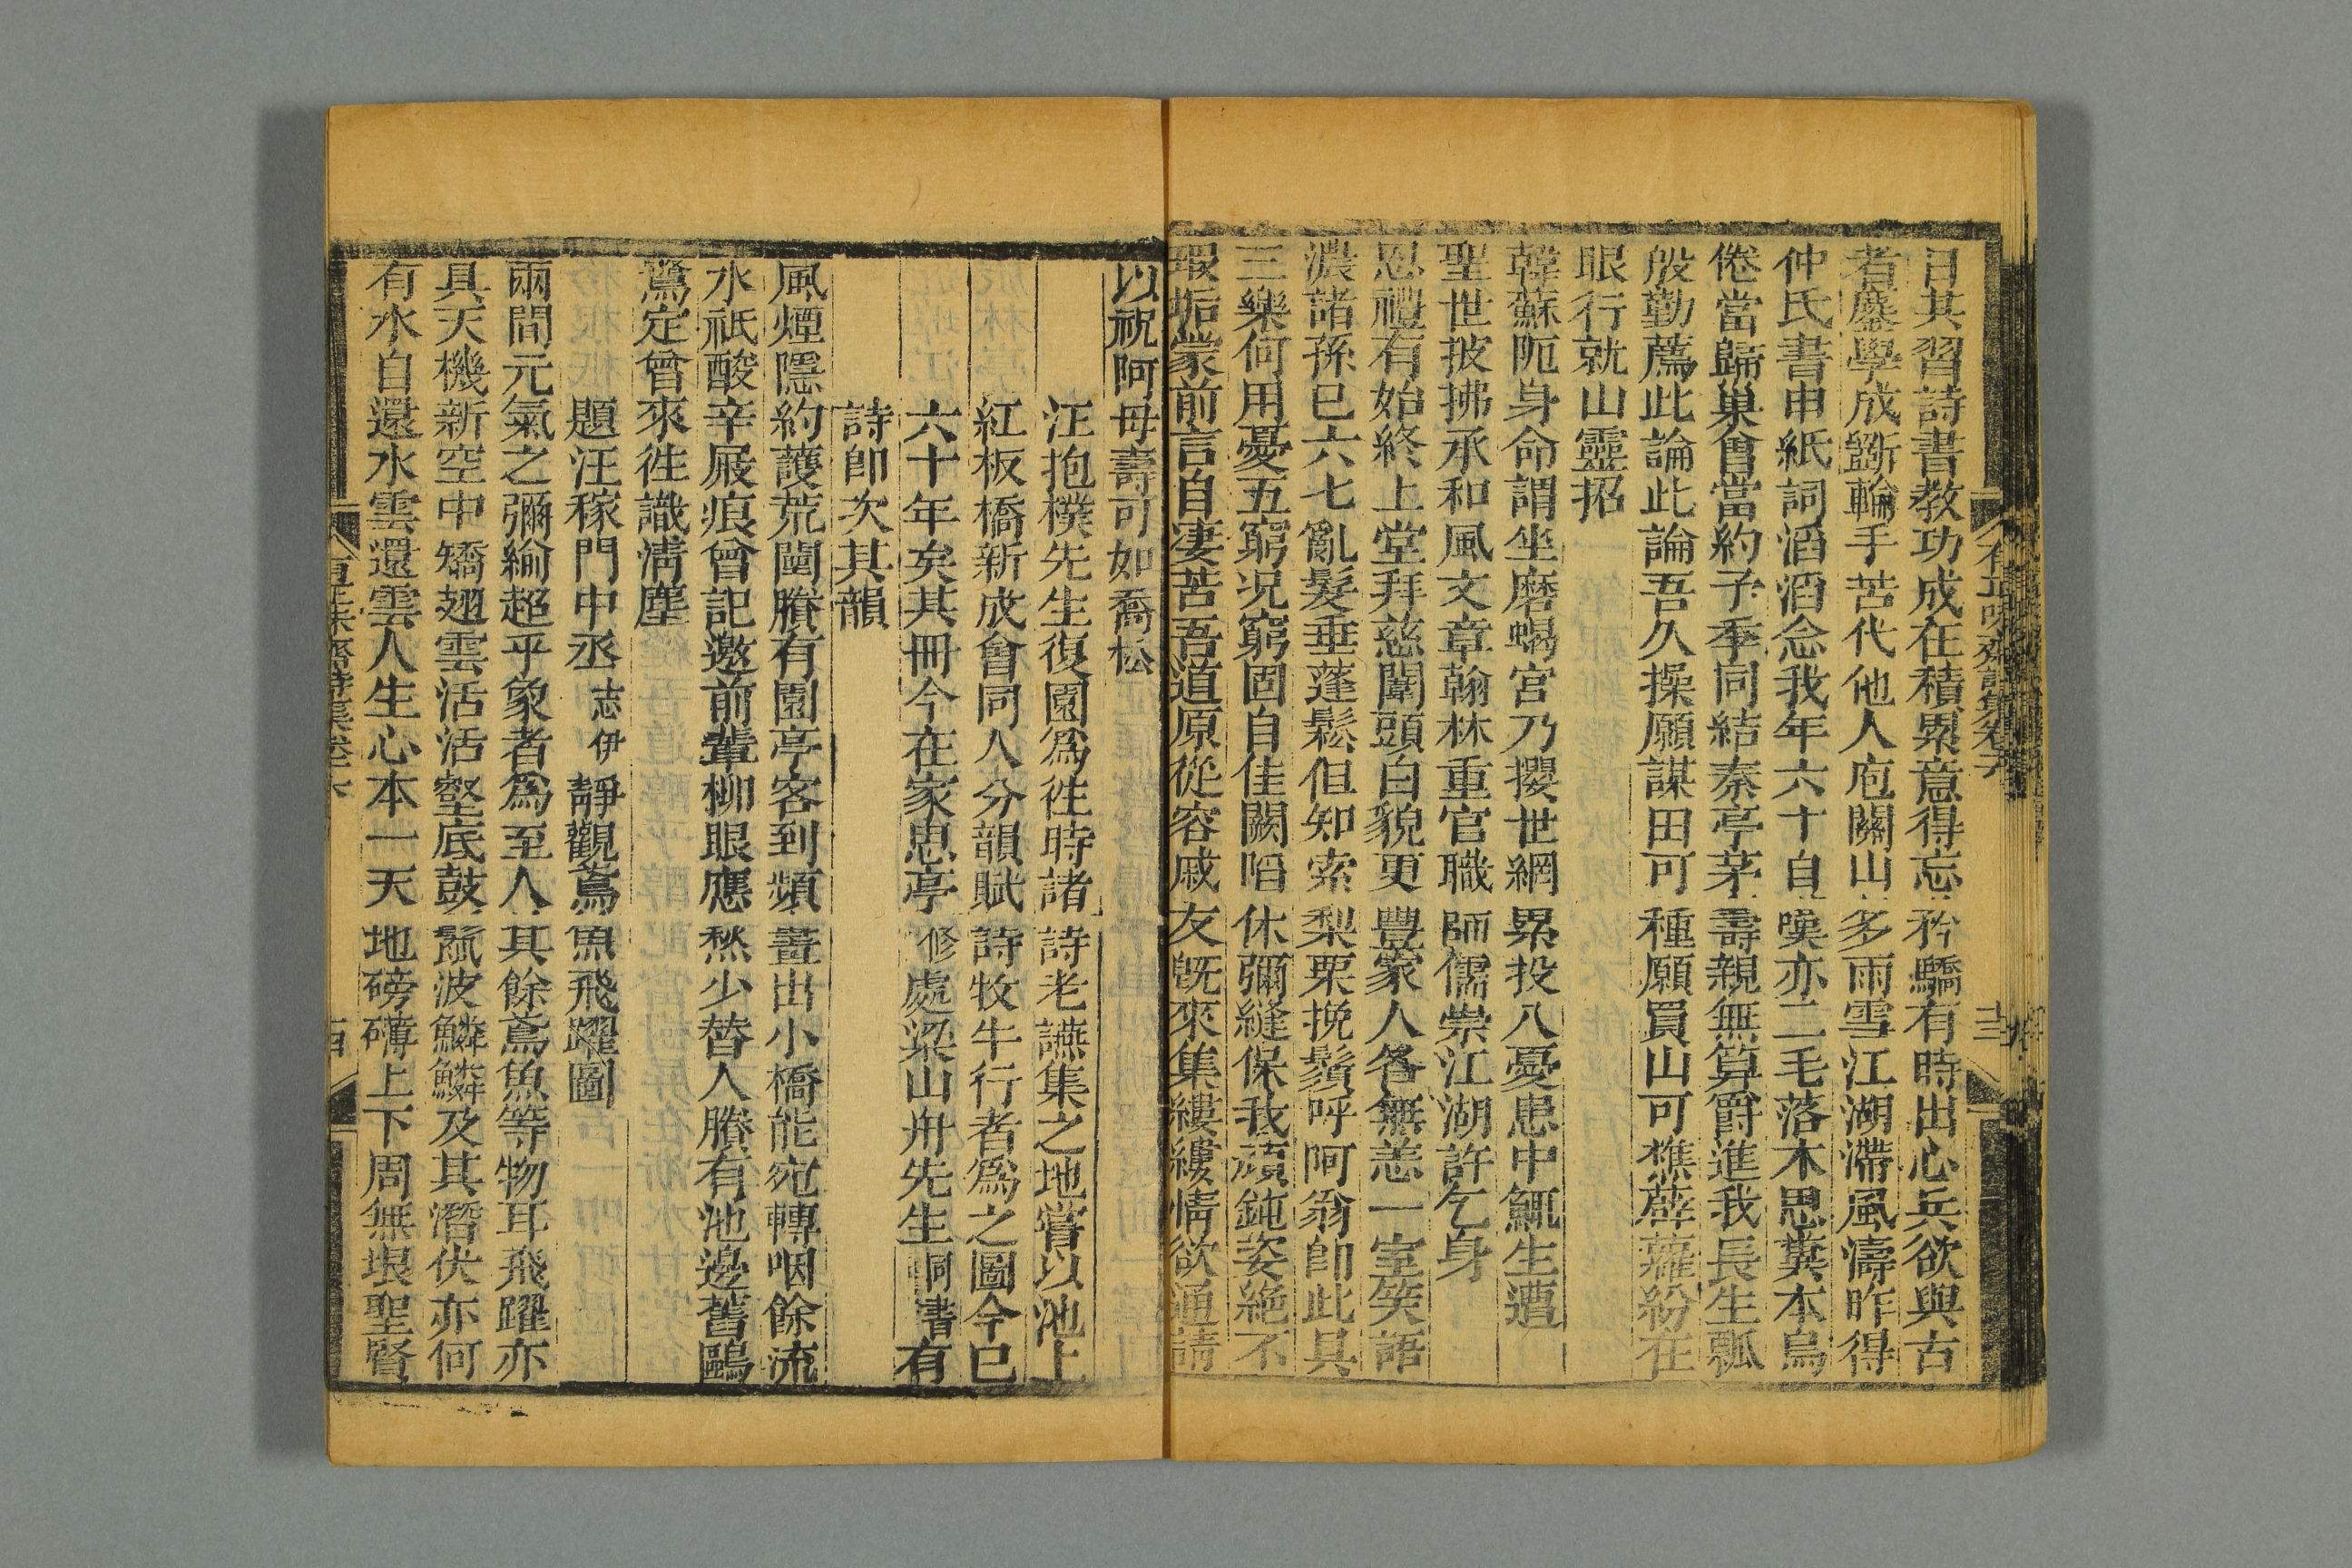 有正味齋詩集卷六
日其習詩書教功成在積累意得忘矜驕有時出心兵欲與古
者鏖學成斵輪手苦代他人庖關山多雨雪江湖滯風濤昨得
仲氏書申紙詞滔滔念我年六十自嘆亦二毛落木思糞本烏
倦當歸巢會當約子季同結泰亭茅壽親無算爵進我長生瓢
般勤薦此論此論吾久操願謀田可種願買山可樵薜蘿紛在
眼行就山靈招
韓蘇阨身命謂坐磨蝎宮乃攖世網累投入憂患中鯫生遭
聖世披拂承和風文章翰林重官職師儒崇江湖許乞身
恩禮有始終上堂拜慈闈頭白貌更豐蒙人各無恙一室笑語
濃諸孫已六七亂髮垂蓬鬆但知索梨栗挽鬚呼阿翁卽此具
三樂何用憂五窮况窮固自佳闕陷休彌縫保我頑鈍姿絶不
瑕垢蒙前言自凄苦吾道原從容戚友旣來集縷縷情欲通請
以祝阿母壽可如喬松
汪抱樸先生復園爲往時諸詩老讌集之地嘗以池上
紅板橋新成會同人分韻賦詩牧牛行者爲之圖今已
六十年矣其冊今在家思亭修處梁山舟先生同書有
詩卽次其韻
風煙隱約護荒闉賸有園亭客到頻畫出小橋能宛轉咽餘流
水祇酸辛屐痕曾記邀前輩柳眼應愁少替人賸有池邊舊鷗
鷺定曾來往識淸塵
題汪稼門中丞志伊靜觀鳶魚飛躍圖
兩間元氣之彌綸超乎象者爲至人其餘鳶魚等物耳飛躍亦
具天機新空中矯翅雲活活壑底鼓鬣波鱗鱗及其潛伏亦何
有水自還水雲還雲人生心本一天地磅礴上下周無垠聖賢